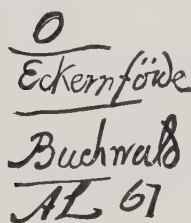 O
Eckernföwe
Buchwald
AL 67